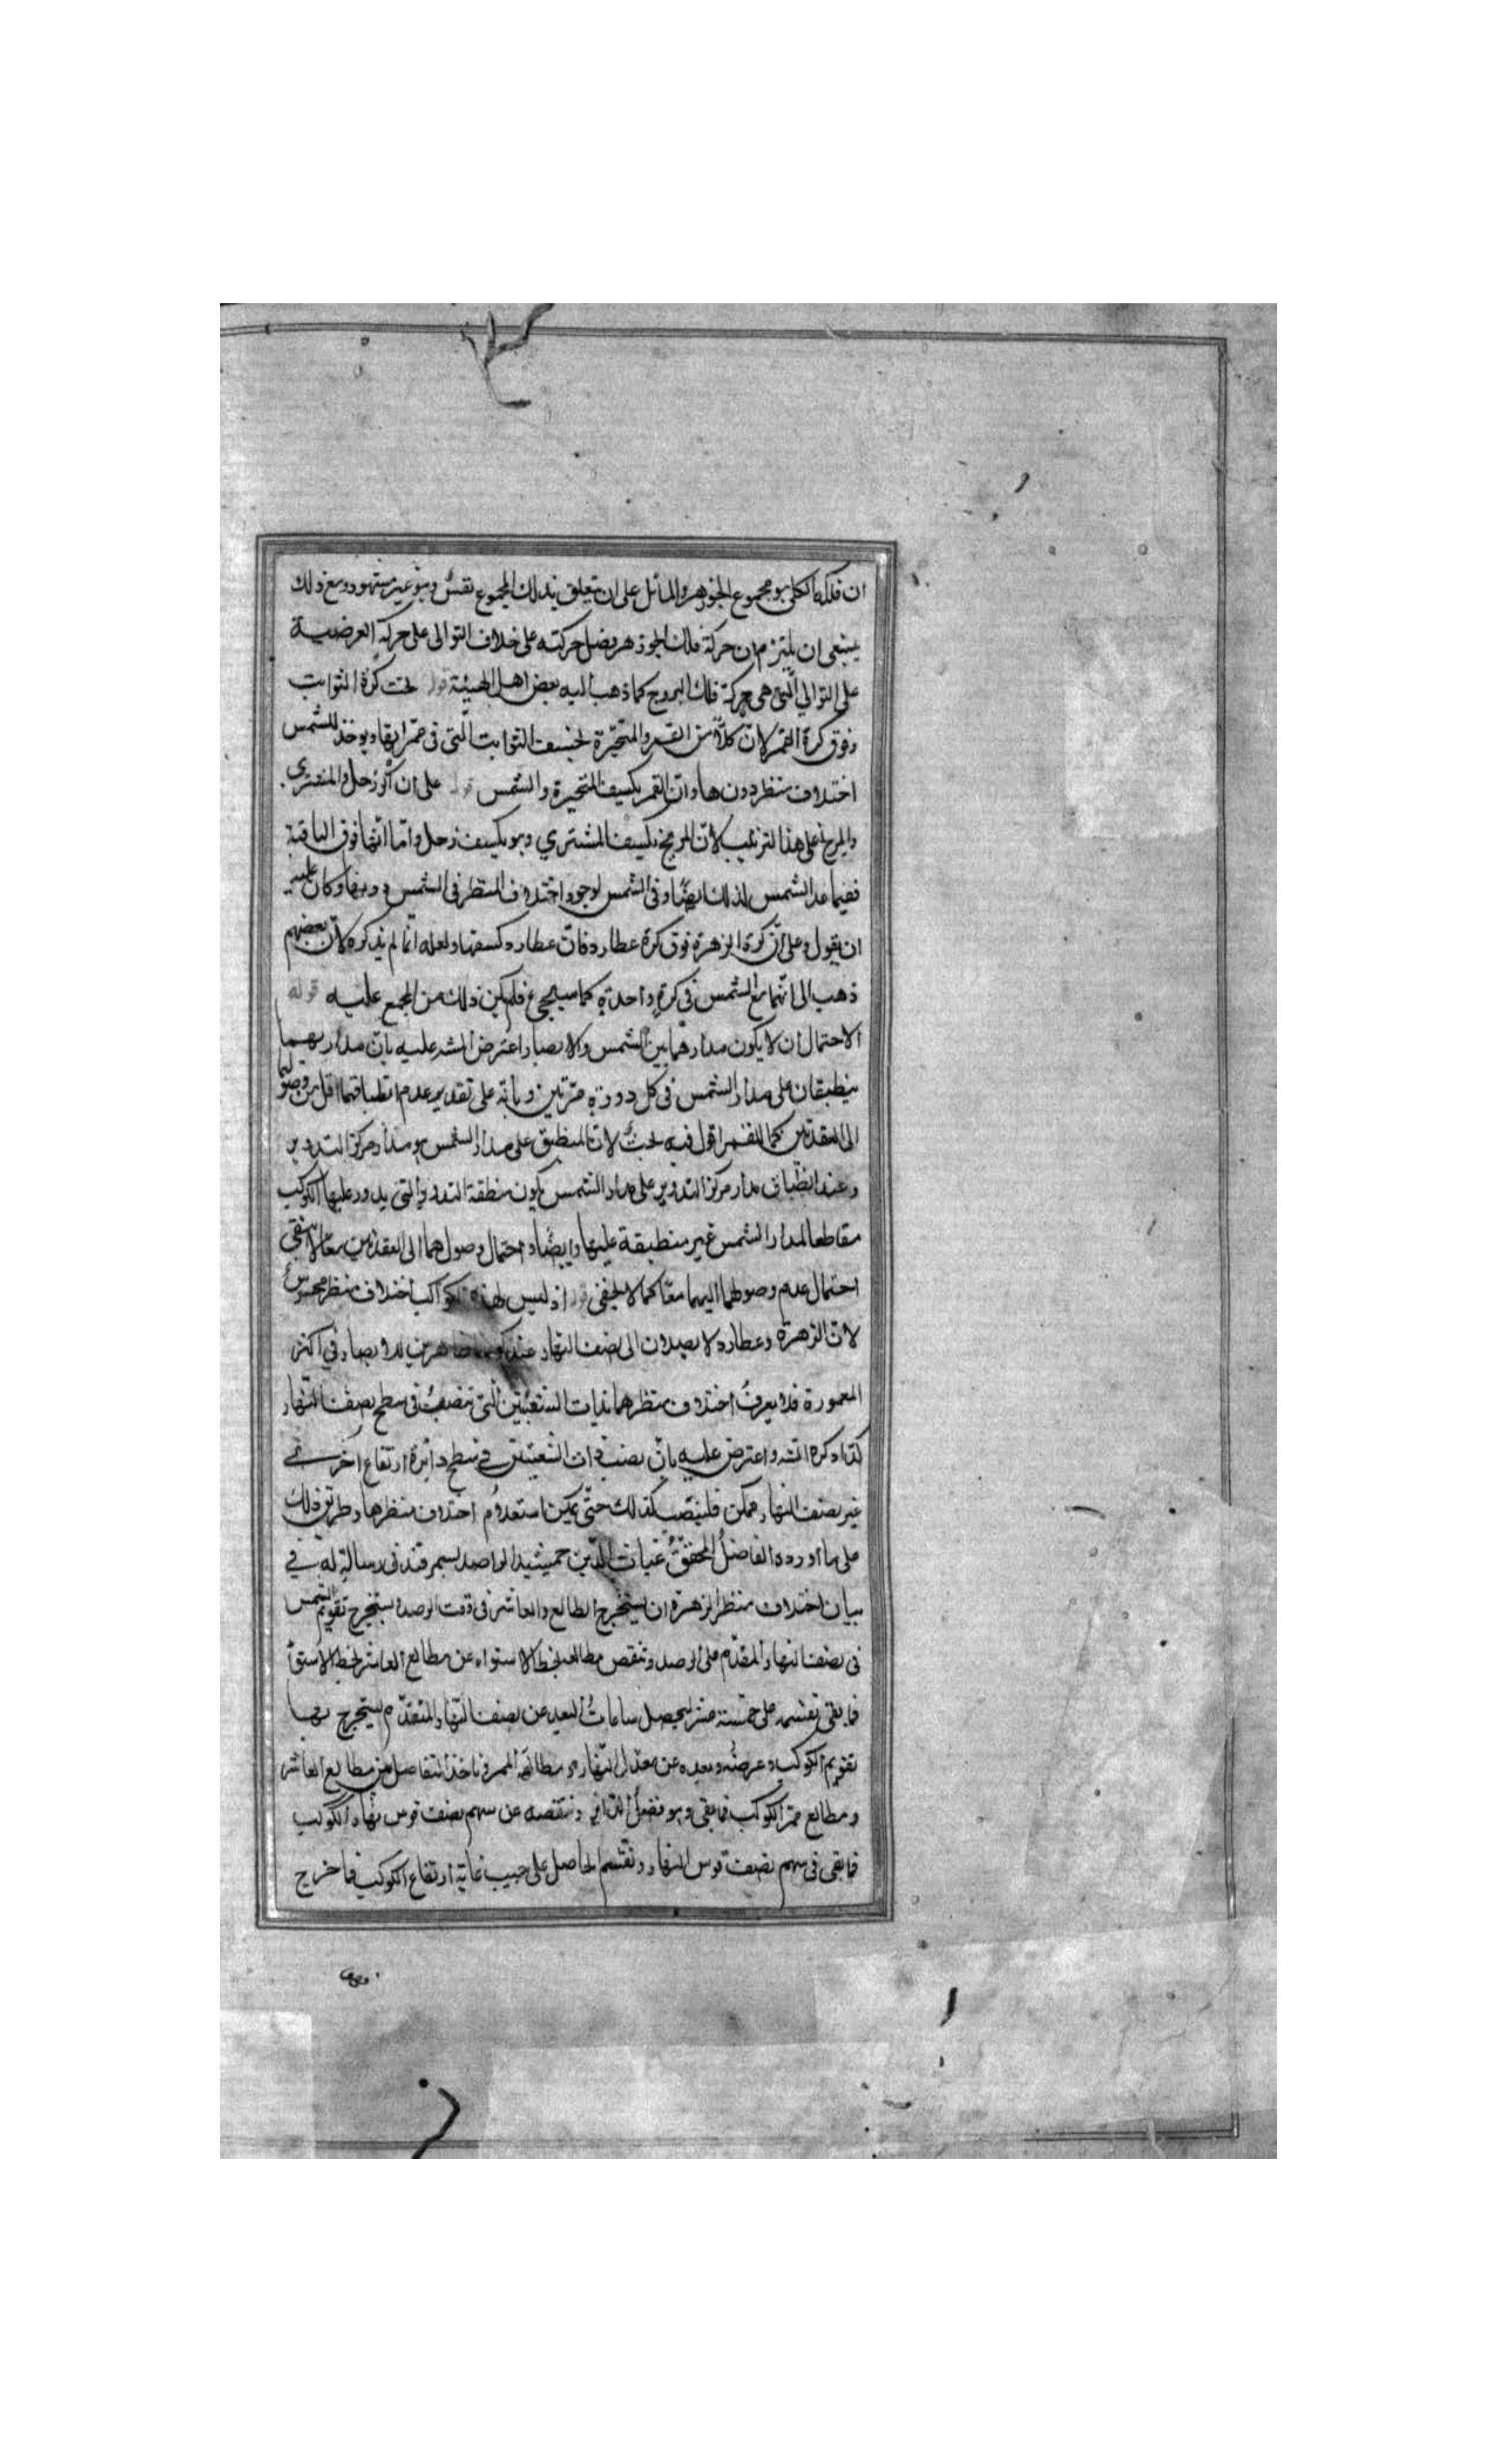 ان فلكه الكلى هو مجموع الجوزهر والمائل على ان يتعلق بذلك المجموع نفس وهو غير مشهود ومع ذلك
ينبغى ان يلتزم ان حركة فلك الجوزهر بفضل حركته على خلاف التوالى على حركته العرضية
على التوالي التى هى حركة فلك البروج كما ذهب اليه بعض اهل الهيئة قوله تحت كرة الثوابت
وفوق كرة القمر لان كلاً من القمر والمتحيّرة تخسف الثوابت التى فى ممرّاتها ويوخذ للشمس
اختلاف منظر دونها وان القمر يكسف المتحيرة والشمس قوله على ان اكر زحل والمشترى
والمريخ على هذا الترتيب لان المريخ يكسف المشتري وهو يكسف زحل وامّا انها فوق الباقية
ففيما عدا الشمس لذلك ايضًا وفى الشمس لوجود اختلاف المنظر فى الشمس دونها وكان عليه
ان يقول وعلى انّ كرة الزهرة فوق كرة عطارد فان عطارد كسفها ولعله انّما لم يذكره لان بعضهم
ذهب الى انهما مع الشمس فى كرةٍ واحدةٍ كما سيجيئ فلم يكن ذلك من المجمع عليه قوله
الاحتمال ان لا يكون مدارهما بين الشمس والابصار اعترض الشه عليه بان مداريهما
ينطبقان على مدار الشمس فى كل دورةٍ مرّتين وبأنّه على تقدير عدم انطباقهما اقل من وصولهما
الى العقدتين كما للقمر اقول فيه بحثٌ لان المنطبق على مدار الشمس هو مدار مركز التدوير
وعند انطباق مدار مركز التدوير على مدار الشمس يكون منطقة التدوير التي يدور عليها الكوكب
مقاطعا لمدار الشمس غير منطبقة عليها وايضًا واحتمال وصولهما الى العقدتين معًا لا ينفى
احتمال عدم وصولهما اليهما معًا كما لا يخفى قوله اذ ليس لهذه الكواكب اختلاف منظر محسوسٌ
لان الزهرة وعطارد لا يصلان الى نصف النهار عند كونهما ظاهرين للابصار في اكثر
المعمورة فلا يعرفُ اختلاف منظرهما بذات الشعبتين التى تنصبُ فى سطح نصف النّهار
كذا ذكره الشه واعترض عليه بانّ نصب ذات الشعبتين فى سطح دائرة ارتفاع اخرى
غير نصف النهار ممكن فلينصب كذلك حتّى يمكن استعلامُ اختلاف منظرها وطريق ذلك
على ما اورده الفاضلُ المحققُ غياث الدّين جمشيد الراصد بسمرقند فى رسالةٍ له في
بيان اختلاف منظر الزهرة ان يستخرج الطالع والعاشر فى وقت الرصد ويستخرج تقويم الشمس
فى نصف النهار المقدّم على الرصد وتنقص مطالعه بخط الاستواء عن مطالع العاشر بخط الاستواء
فما بقى نقسمه على خمسة عشر ليحصل ساعاتُ البعد عن نصف النّهار المتقدّم يستخرج بها
تقويم الكوكب وعرضُه وبعده عن معدل النّهار ومطالعَ الممر وناخذ التفاضل بين مطالع العاشر
ومطالع ممرّ الكوكب فما بقى وهو فضلُ الدائر وننقصه عن سهم نصف قوس نهار الكوكب
فما بقى فى سهم نصف قوس النهار ونقسم الحاصل على جيب غاية ارتفاع الكوكب فما خرج